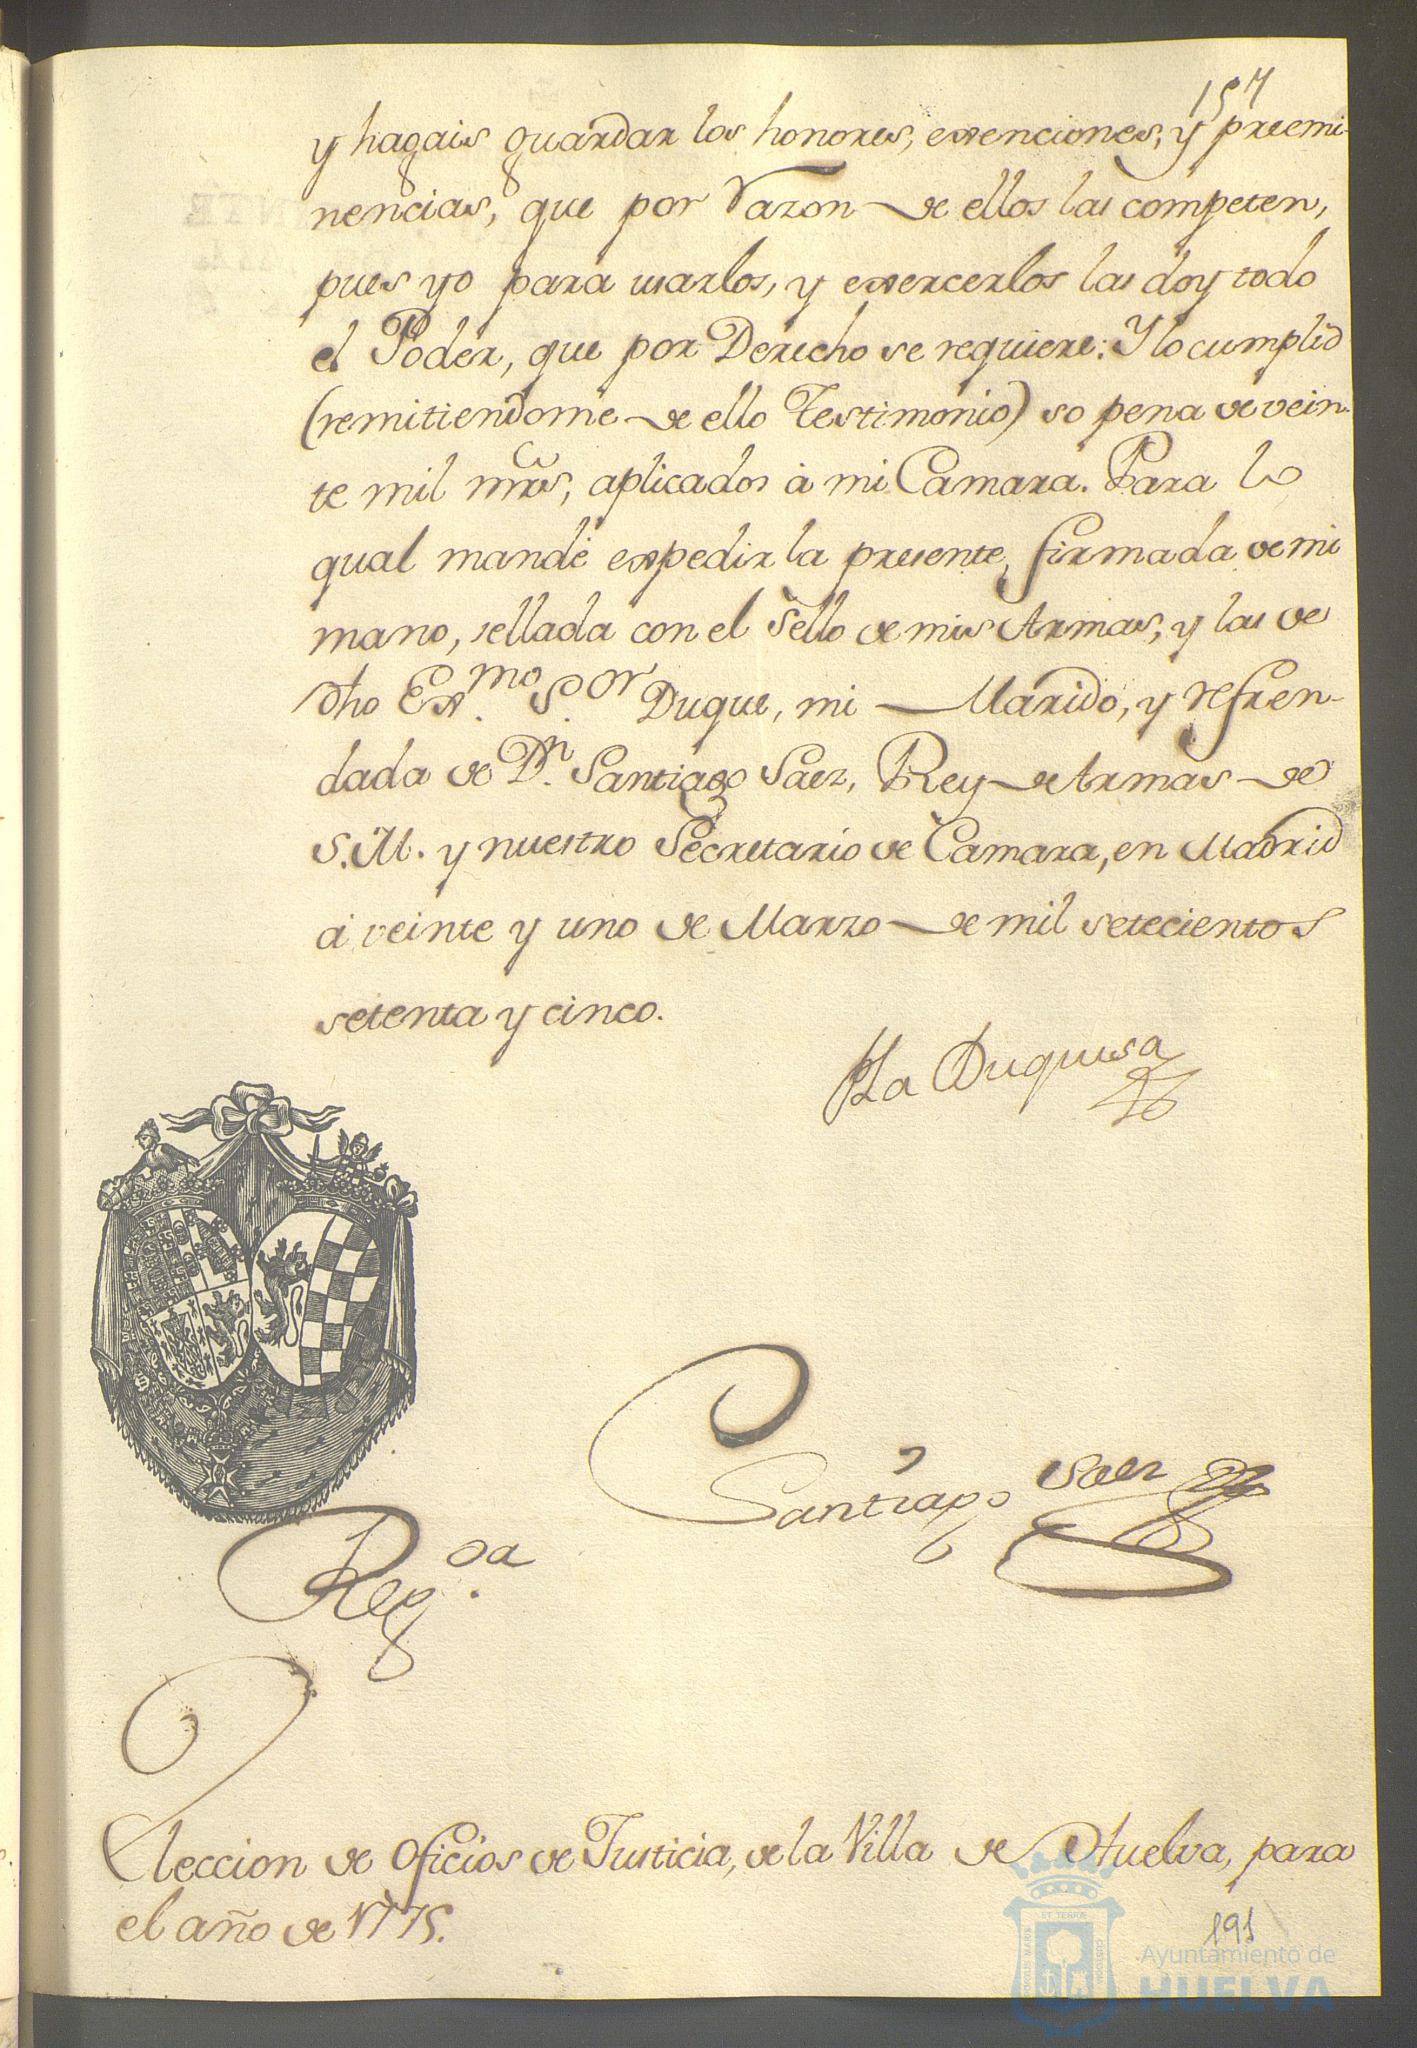 157
y hagais guardar los honores, exenciones, y preemi-
nencias, que por razon de ellos las competen,
pues yo para usarlos, y exercerlos las doy todo
el Poder, que por Derecho se requiere: Y lo cumplid
(remitiendome de ello Testimonio) so pena de vein-
te mil mrs, aplicados à mi Camara. Para lo
qual mandè expedir la presente, firmada de mi
mano, sellada con el Sello de mis Armas, y las de
dho Exmo. Sor. Duque, mi Marido, y refren-
dada de Dn. Santiago Saez, Rey de Armas de
S.M. y nuestro Secretario de Camara, en Madrid
à veinte y uno de Marzo de mil setecientos
setenta y cinco.
La Duquesa
Santiago Saez
Regda.
Eleccion de Oficios de Justicia, de la Villa de Huelva, para
el año de 1775.
191
Ayuntamiento de
HUELVA